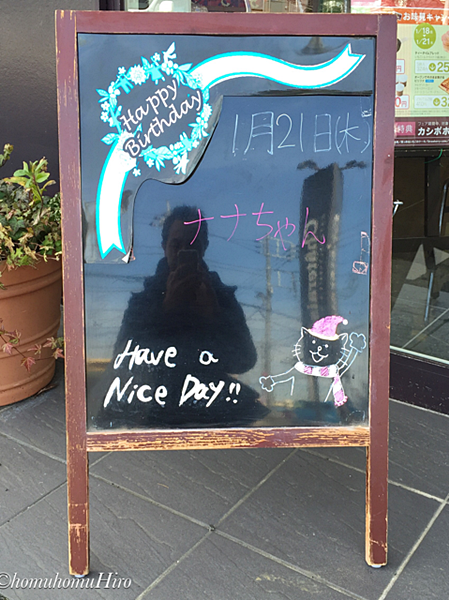 Happy
Birthday
1月21日(木)
ナナちゃん
Have a
Nice Day!!
1/18
1/21
特典 カシポポ
©homuhomuHiro